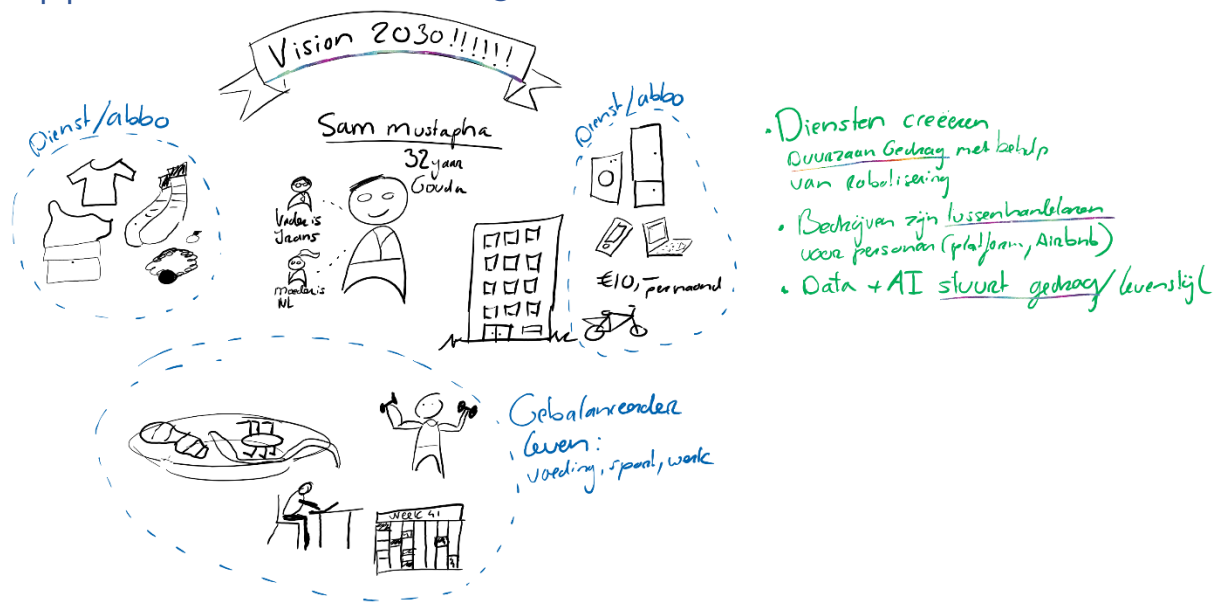 Vision 2030!!!!!!
Dienst/abbo
Sam Mustapha
32 yaar
Gouda
Vader is
Iraans
Moeder is
NL
Dienst/abbo
€10,- per maand
Gebalanceerder
leven:
voeding, sport, werk
week 41
• Diensten creëeren
Duurzaan Gedrag met behulp
van Robotisering
• Bedrijven zijn tussenhandelaren
voor personen (platform, Airbnb)
• Data + AI stuurt gedrag/levenstijl